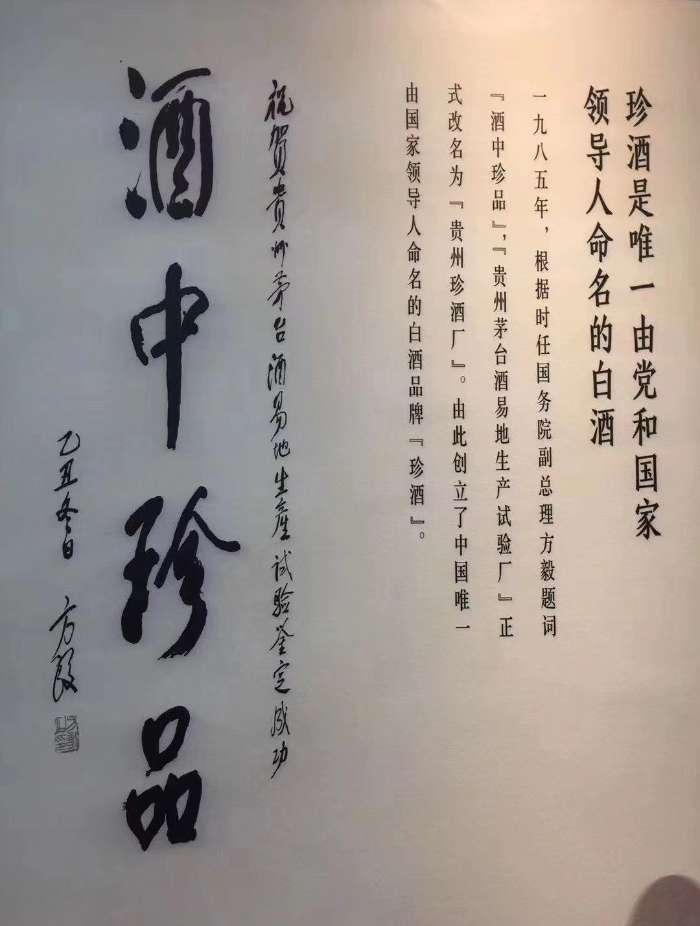 珍酒是唯一由党和国家
领导人命名的白酒
一九八五年，根据时任国务院副总理方毅题词
『酒中珍品』，『贵州茅台酒易地生产试验厂』正
式改名为『贵州珍酒厂』。由此创立了中国唯一
由国家领导人命名的白酒品牌『珍酒』。
祝贺贵州茅台酒易地生產试验鉴定成功
酒中珍品
乙丑冬日 方毅